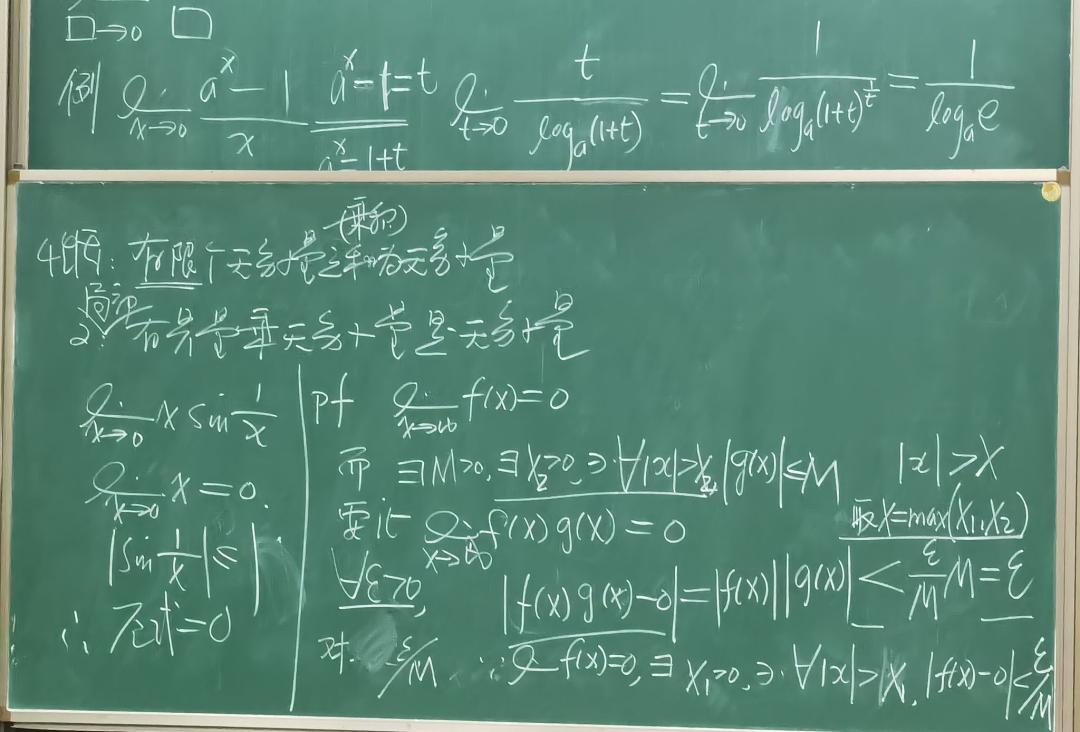 □→0 □
例 lim x→0 (a^x − 1)/x  a^x − 1 = t  lim t→0 t/log_a(1+t) = lim t→0 1/log_a(1+t)^(1/t) = 1/log_a e
a^x = 1+t
(乘积)
有限个无穷小量之和为无穷小量
2. 有界量乘无穷小量是无穷小量
lim x→0 x sin 1/x
lim x→0 x = 0.
|sin 1/x| ≤ 1.
∴ 原式 = 0
pf lim x→∞ f(x) = 0
而 ∃M>0, ∃X₂>0, ∋· ∀|x|>X₂, |g(x)| ≤ M  |x| > X
要证 lim x→∞ f(x) g(x) = 0  取X = max(X₁, X₂)
∀ε>0, |f(x) g(x) − 0| = |f(x)| |g(x)| < ε/M M = ε
对 ε/M ∵ lim f(x) = 0, ∃ X₁>0, ∋· ∀|x|>X₁, |f(x) − 0| < ε/M